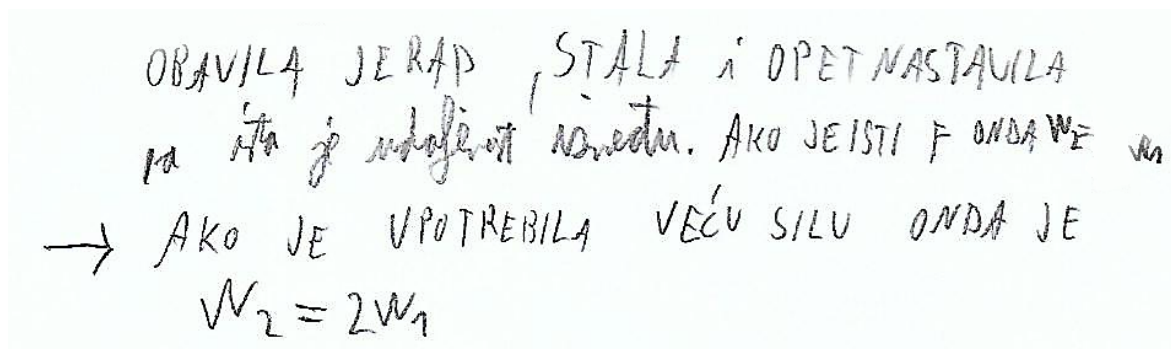 OBAVILA JE RAD, STALA i OPET NASTAVILA
pa ista je udaljenost između. AKO JE ISTI F ONDA W₂
→ AKO JE UPOTREBILA VEĆU SILU ONDA JE
W₂ = 2W₁